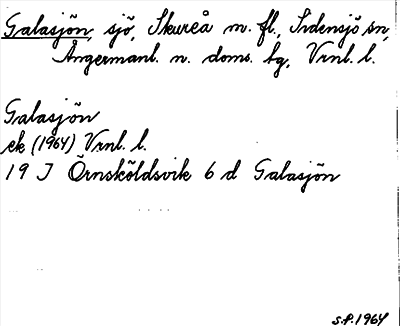 Galasjön, sjö, Skureå m. fl., Sidensjö sn,
Ångermanl. n. doms. tg, Vrnl. l.
Galasjön
ek (1964) Vrnl. l.
19 J Örnsköldsvik 6 d Galasjön
S.P. 1964